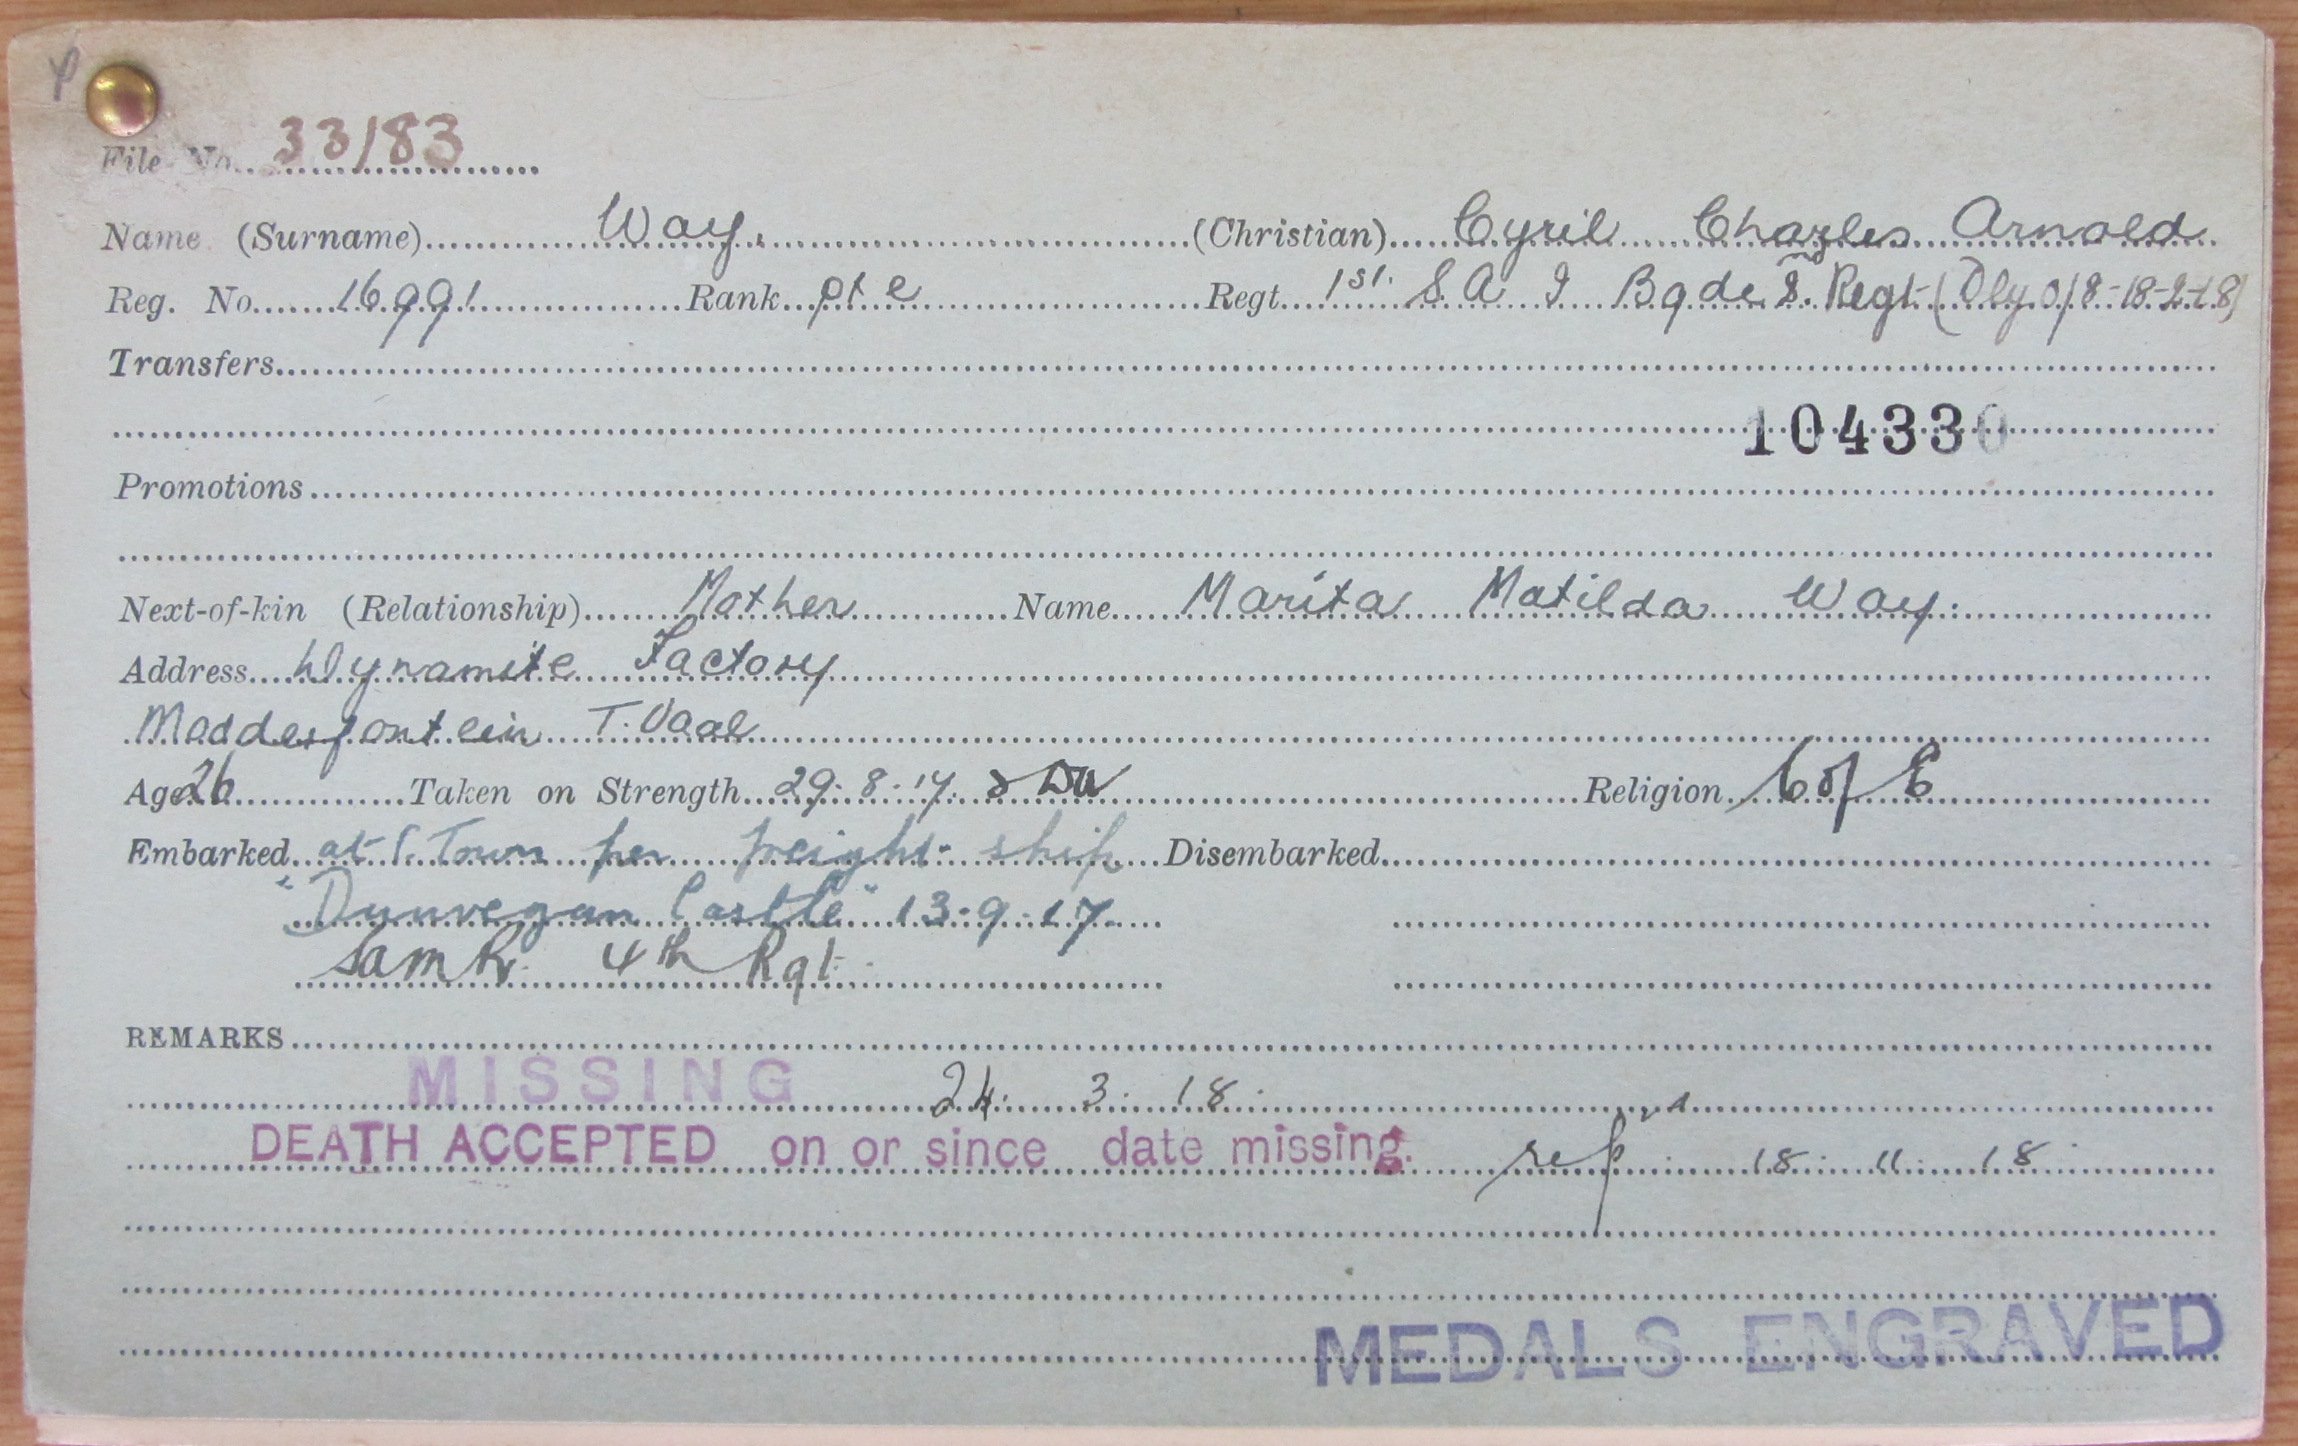 File No. 33/83
Name (Surname) Way. (Christian) Cyril Charles Arnold
Reg. No. 16991 Rank pte Regt. 1st. S A I Bgde 2nd Regt (Dly O/8-18-2-18)
Transfers
104330
Promotions
Next-of-kin (Relationship) Mother Name Marita Matilda Way.
Address Dynamite Factory
Modderfontein T. Vaal
Age 26 Taken on Strength 29.8.17. Religion C of E
Embarked at C. Town per freight ship Disembarked
"Dunvegan Castle" 13.9.17.
Samk. 4th Rgt.
REMARKS
MISSING 24. 3. 18.
DEATH ACCEPTED on or since date missing. 18. 11. 18.
MEDALS ENGRAVED